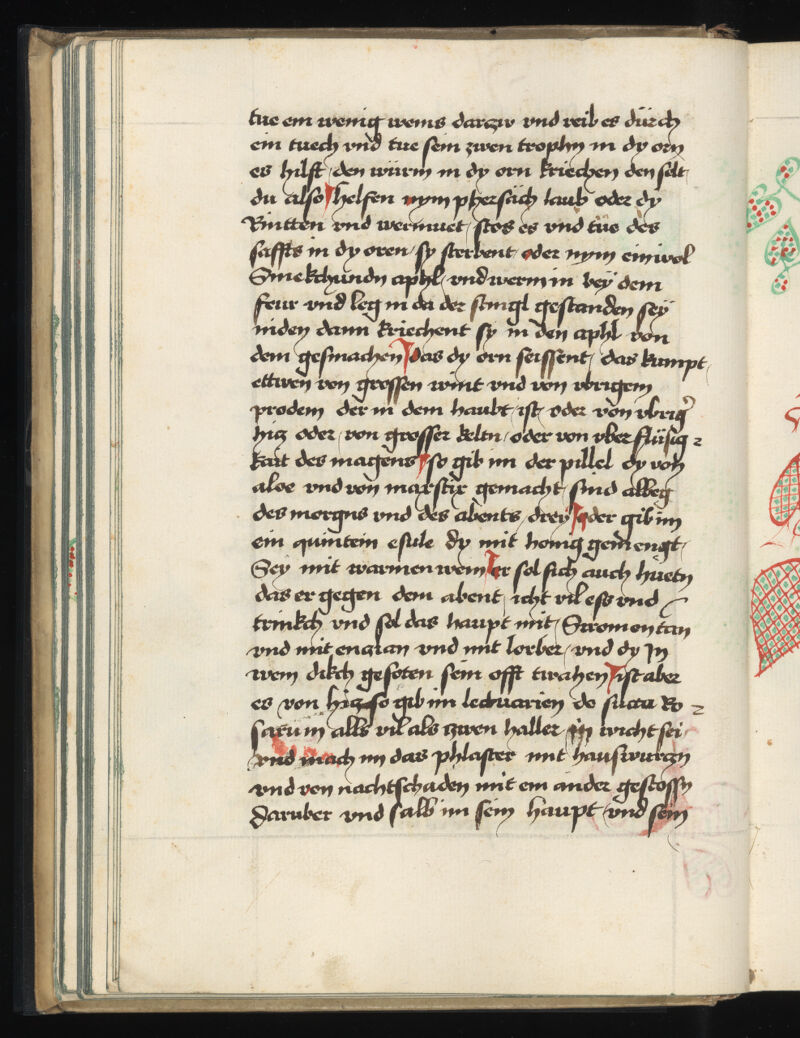 tue ein wenig weins darczw vnd reib es durch
ein tuech vnd tue sein zwen trophn in dy orn
es hilft den würm in dy orn kriechen den solt
du also helfen nym phersich laub oder dy
Rintten vnd wermuet stos es vnd tue des
saffts in dy oren sy sterbent oder nym ein wol
Smekchundn aphl vnd werm in bey dem
feur vnd leg in da der stingl gestanden sey
niden dann kriechent sy in den aphl von
dem gesmachen das dy orn seissent das kumpt
ettwen von grossen wint vnd von vbrigem
prodem der in dem haubt ist oder von vbrig̾
hicz oder von grosser keltn oder von vberflüsig
kait des magens so gib im der pillel dy von
aloe vnd von mastix gemacht sind albeg
des morgns vnd des abents drey oder gib im
ein quintein esule dy mit honig gemengt
Sey mit warmen wein er sol sich auch huetn
das er gegen dem abent icht vil ess vnd
trinkch vnd sol das haupt mit Stromontan
vnd mit enczian vnd mit lorber vnd dy In
wein dikch gesoten sein offt twahen ist aber
es von hicz so gib im lectuarien de sucra Ro
sarum alls vil als zwen haller in wicht sei
vnd mach im das phlaster mit hauswurczn
vnd von nachtschaden mit ein ander gestossn
daruber vnd salb im sein haupt vnd sein